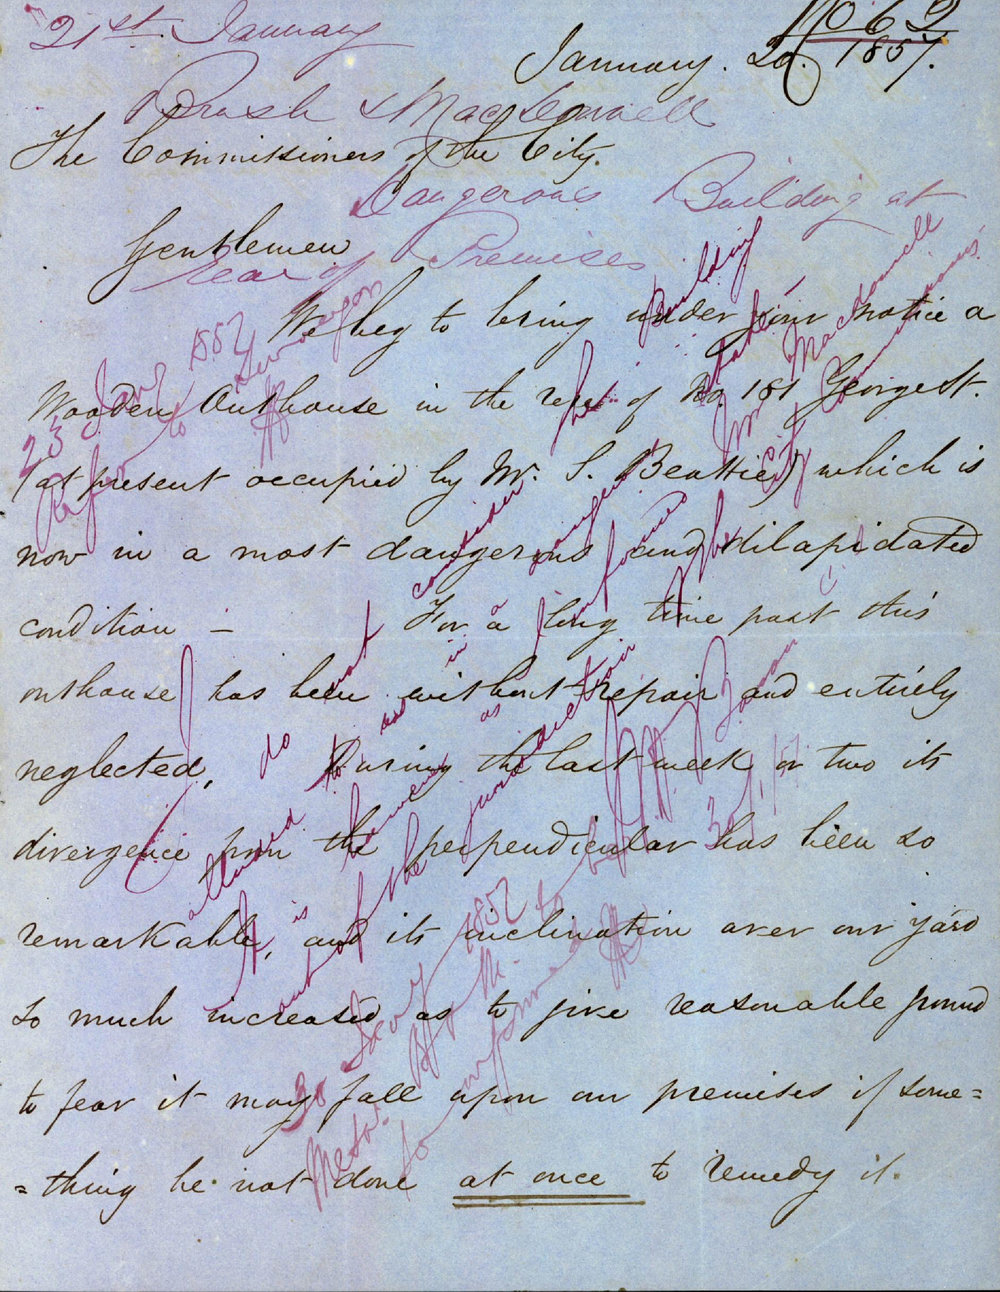 No 69
21st January
January. 20. 1857.
Brush & MacDonnell
The Commissioners of the City.
Dangerous Building at
Gentlemen
Rear of Premises
We beg to bring under your notice a
Wooden Outhouse in the rear of No. 181 George St.
(at present occupied by Mr. S. Beattie) which is
now in a most dangerous and dilapidated
condition – For a long time past this
outhouse has been without repair and entirely
neglected, During the last week or two its
divergence from the perpendicular has been so
remarkable, and its inclination over our yard
so much increased as to give reasonable ground
to fear it may fall upon our premises if some=
=thing be not done at once to remedy it.
23 Jany 1857
Refer to Surveyor
I do not consider the Building
alluded to as in a dangerous state,
It is however as
out of the jurisdiction
City Commissioners
30/1/57
30 Jany 1857
to be
informed